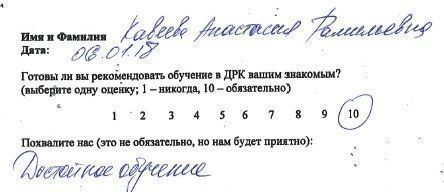 Имя и Фамилия Кавеева Анастасия Рамильевна
Дата: 06.01.18
Готовы ли вы рекомендовать обучение в ДРК вашим знакомым?
(выберите одну оценку; 1 – никогда, 10 – обязательно)
1 2 3 4 5 6 7 8 9 10
Похвалите нас (это не обязательно, но нам будет приятно):
Достойное обучение